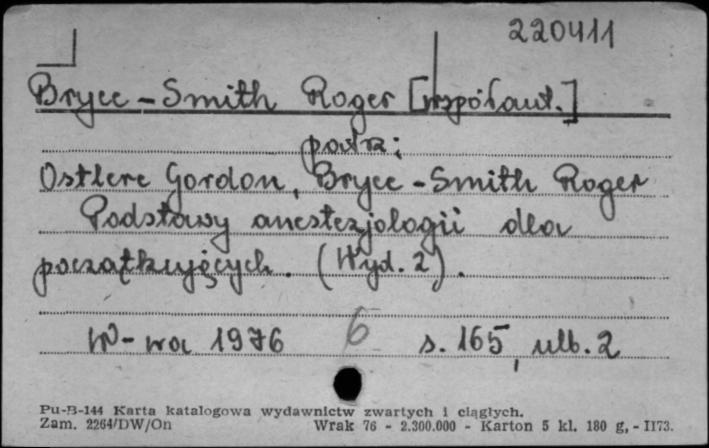 220411
Bryce-Smith Roger [współaut.]
patrz:
Ostlere Gordon, Bryce-Smith Roger
Podstawy anestezjologii dla
początkujęcych. (Wyd. 2).
W-wa 1976 6 s. 165, ulb. 2
Pu-B-144 Karta katalogowa wydawnictw zwartych i ciągłych.
Zam. 2264/DW/On Wrak 76 - 2.300.000 - Karton 5 kl. 180 g, - II73.